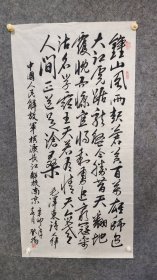 鍾山風雨起蒼黃百萬雄師過
大江虎踞龍盤今勝昔天翻地
覆慨而慷宜將剩勇追窮寇不可
沽名學霸王天若有情天亦老
人間正道是滄桑
毛澤東詩
中國人民解放軍橫渡長江解放南京